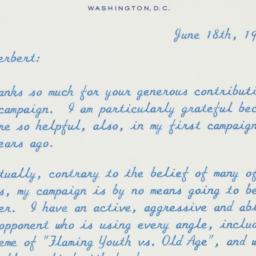 WASHINGTON, D.C.
June 18th, 19
erbert:
anks so much for your generous contributi
campaign. I am particularly grateful bec
re so helpful, also, in my first campaign
ears ago.
tually, contrary to the belief of many of
s, my campaign is by no means going to be
er. I have an active, aggressive and abl
opponent who is using every angle, includ
eme of "Flaming Youth vs. Old Age", and w